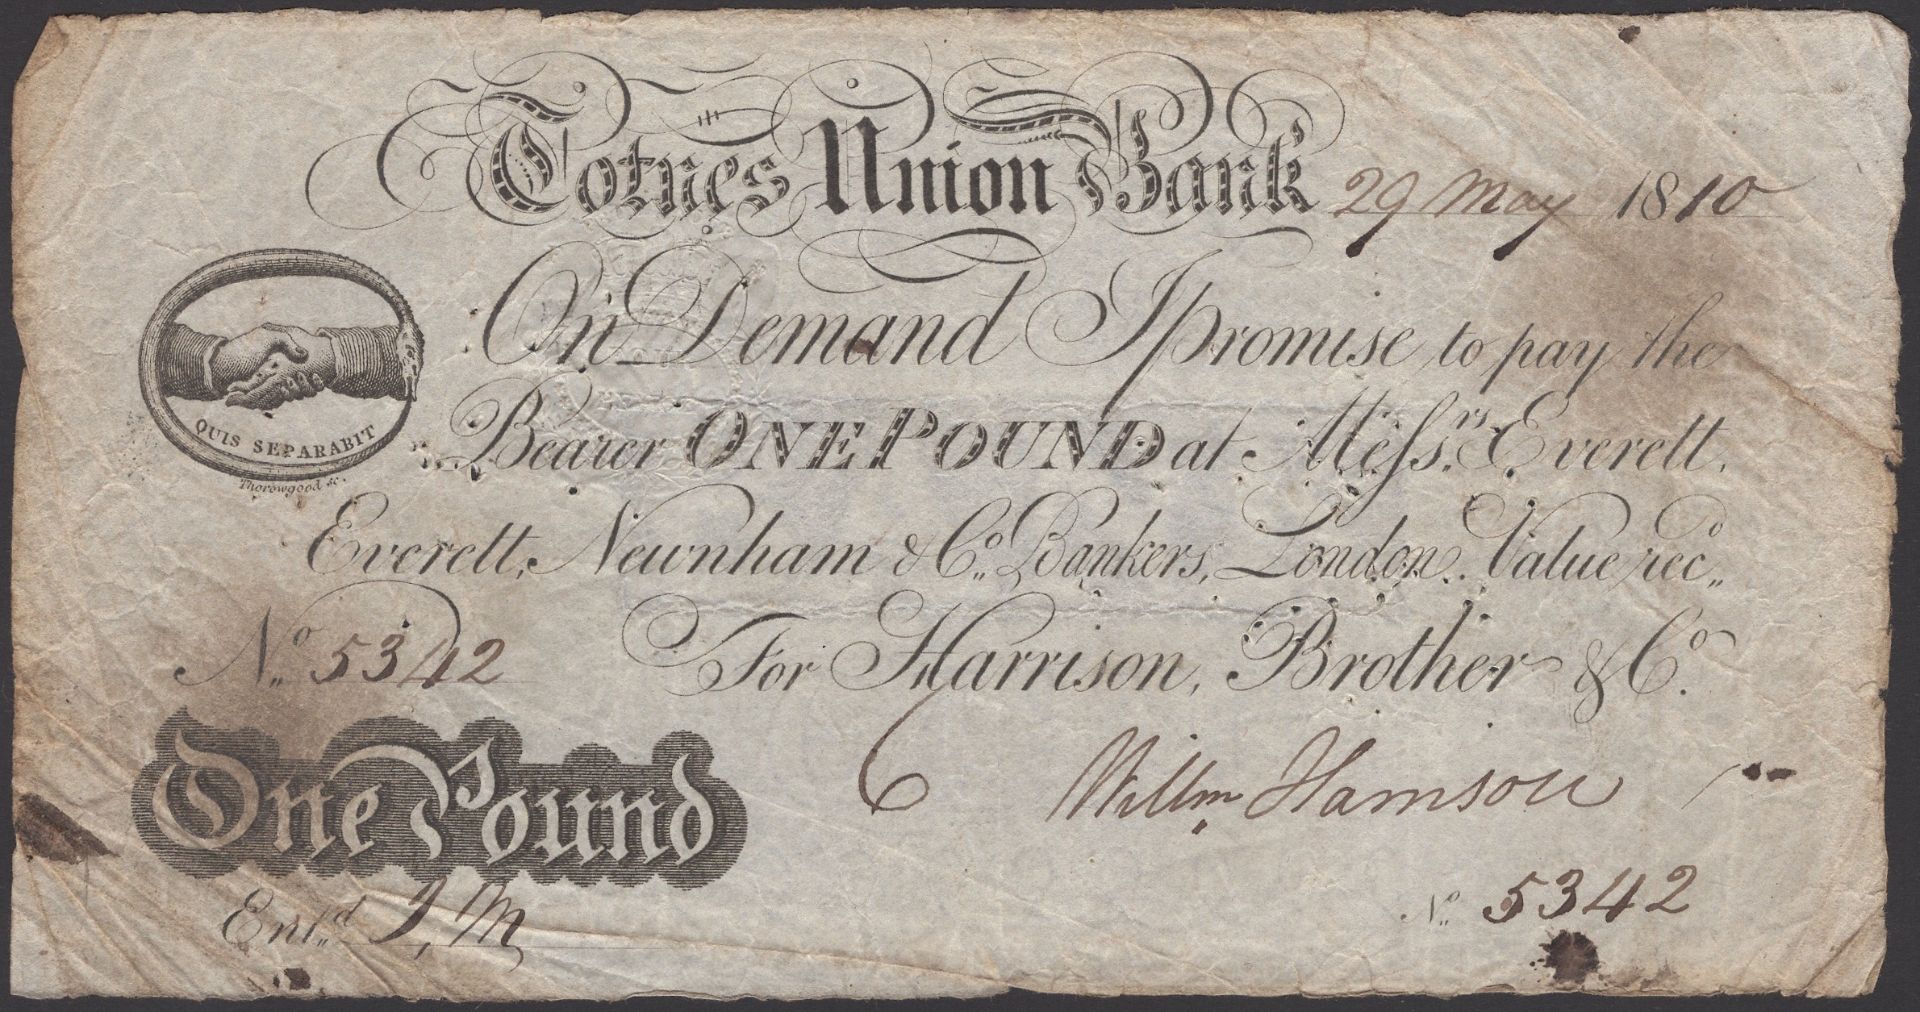 Totnes Union Bank 29 May 1810
On Demand I promise to pay the
Bearer ONE POUND at Messrs. Everett,
Everett, Newnham & Co. Bankers, London. Value recd.
QUIS SEPARABIT
Thorowgood sc.
No. 5342 For Harrison, Brother & Co.
Willm Harrison
One Pound
No. 5342
Entd. J, M